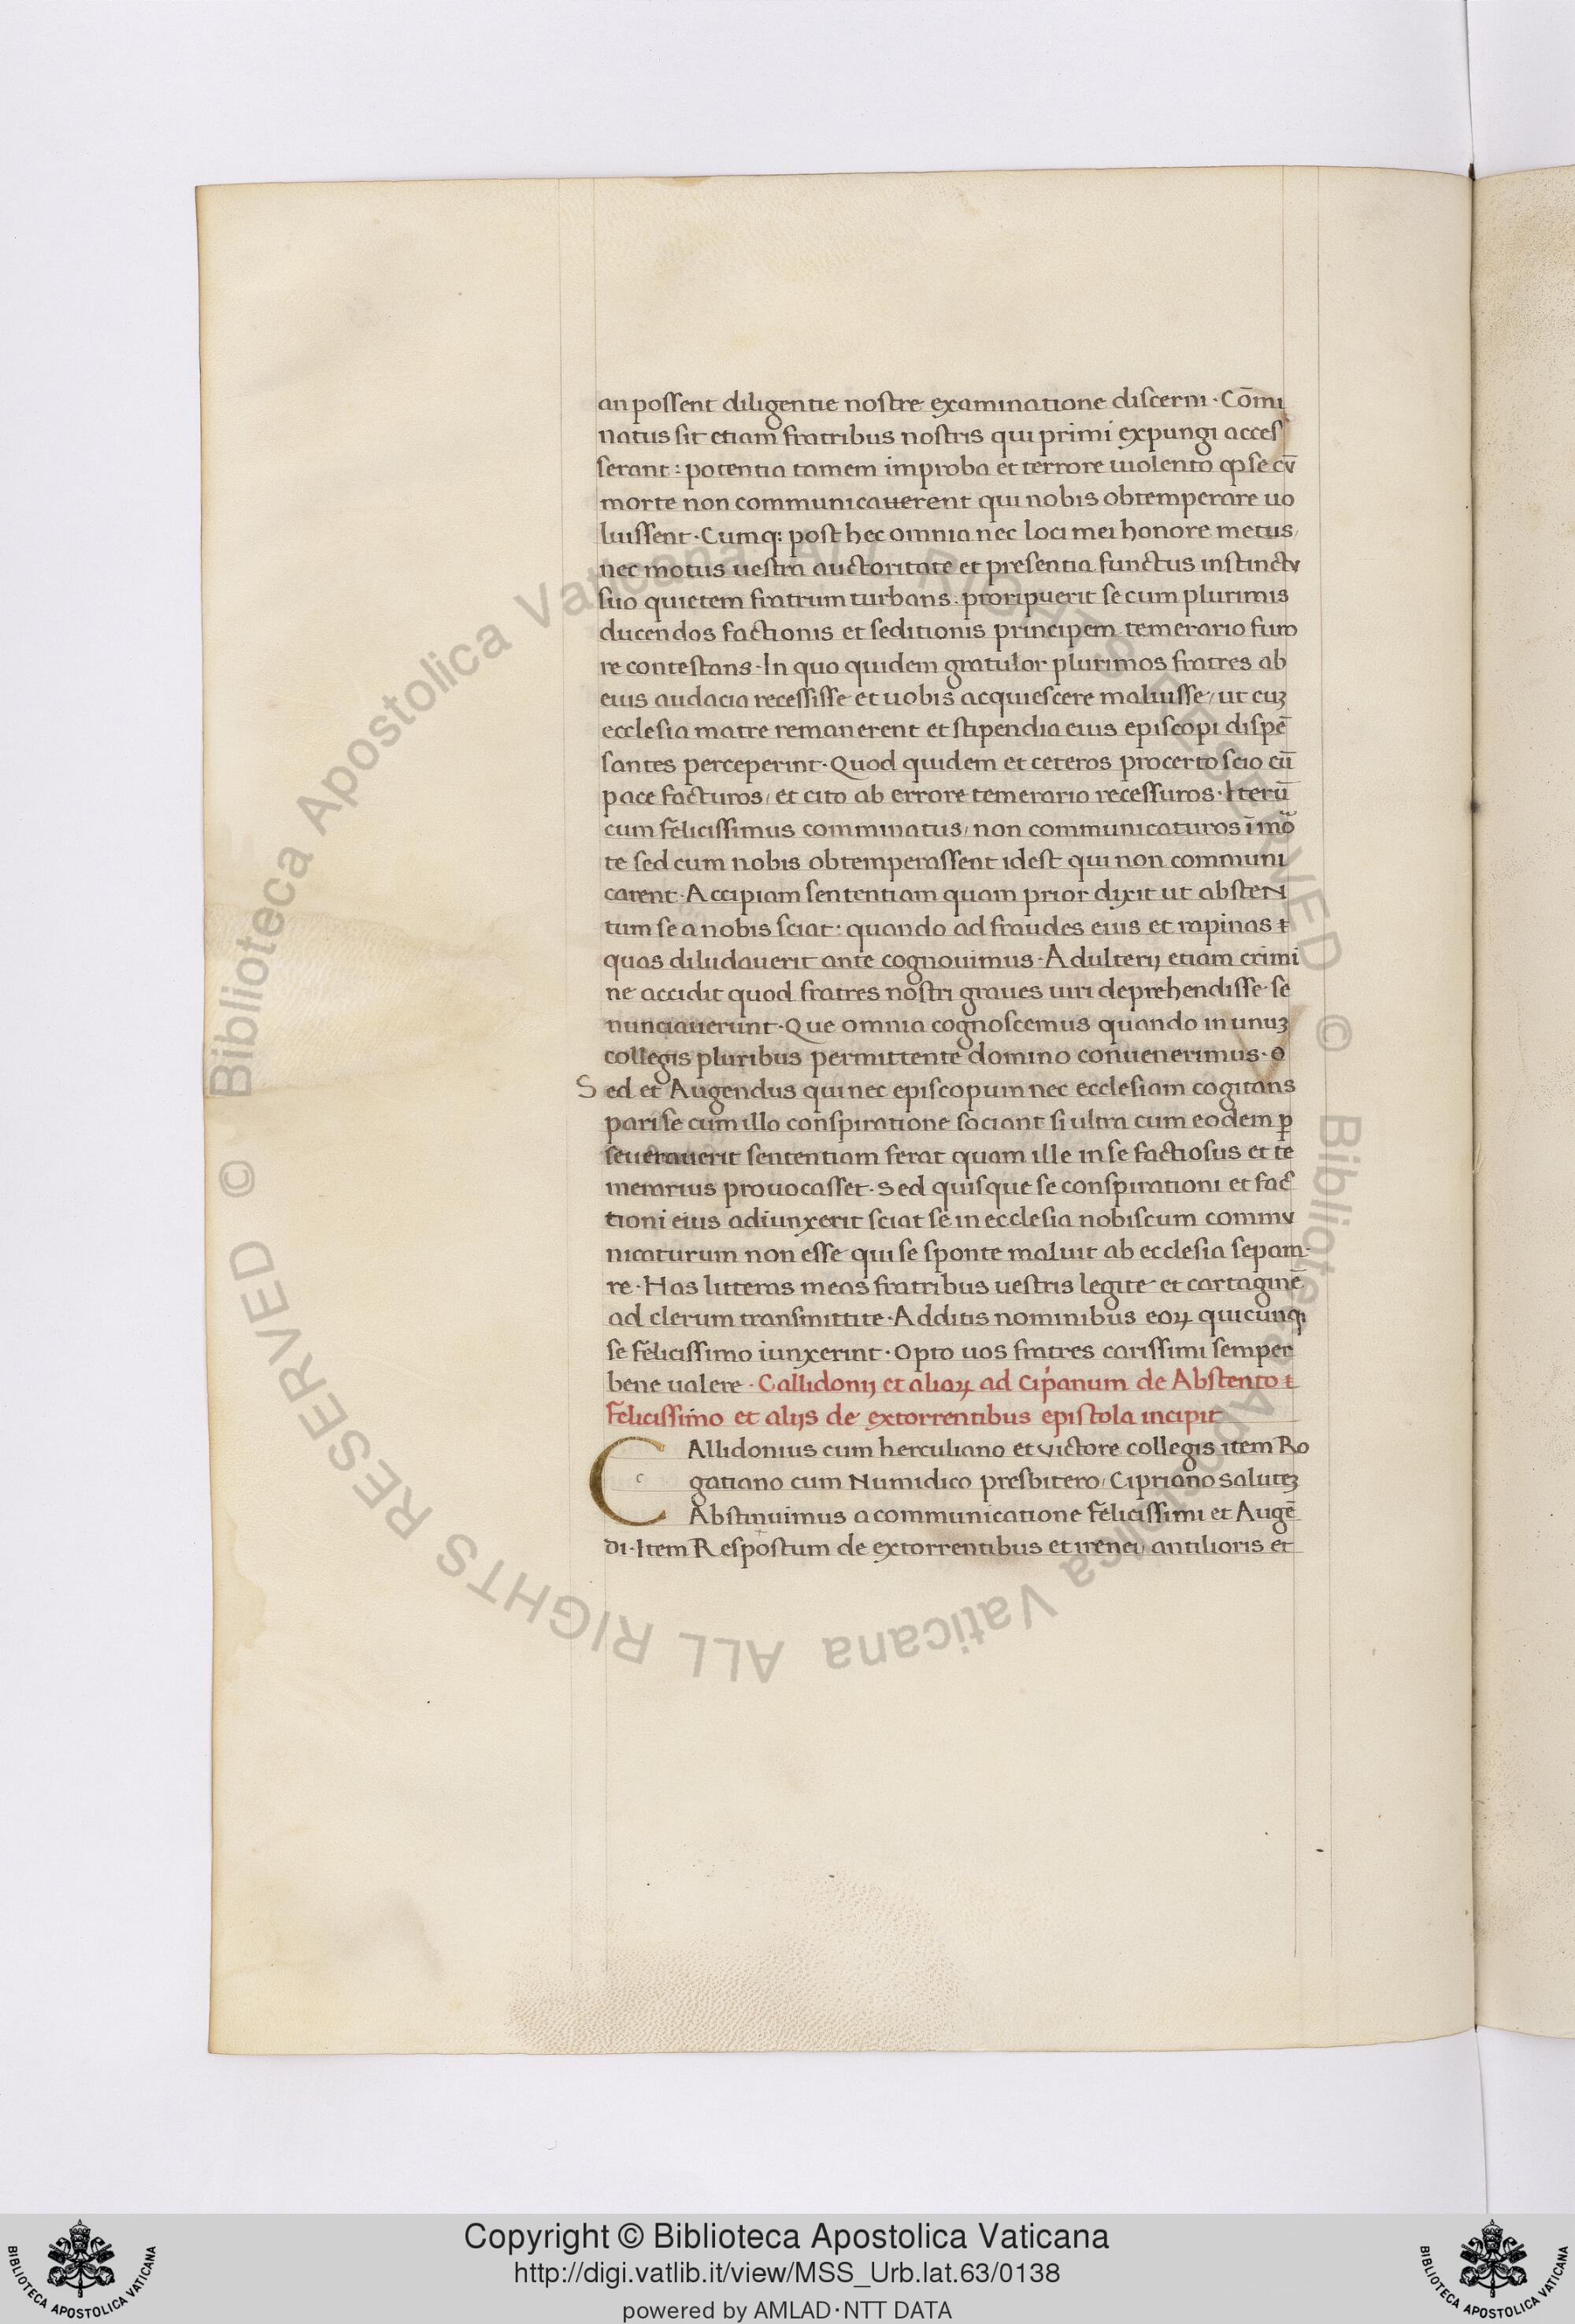 an possent diligentie nostre examinatione discerni · Cōmi
natus sit etiam fratribus nostris qui primi expungi acces
serant : potentia tamem improba et terrore uiolento ꝙ se cū
morte non communicauerent qui nobis obtemperare uo
luissent · Cumq; post hec omnia nec loci mei honore metus,
nec motus uestra auctoritate et presentia functus instinctv
suo quietem fratrum turbans : proripuerit se cum plurimis
ducendos factionis et seditionis principem temerario furo
re contestans · In quo quidem gratulor plurimos fratres ab
eius audacia recessisse et uobis acquiescere maluisse, ut cuȝ
ecclesia matre remanerent et stipendia eius episcopi dispē
santes perceperint · Quod quidem et ceteros procerto scio cū
pace facturos, et cito ab errore temerario recessuros · Iterū
cum felicissimus comminatus, non communicaturos ī mo
te sed cum nobis obtemperassent idest qui non communi
carent · Accipiam sententiam quam prior dixit ut absteN
tum se a nobis sciat : quando ad fraudes eius et rapinas ꝉ
quas diludauerit ante cognouimus · Adulterij etiam crimi
ne accidit quod fratres nostri graues uiri deprehendisse se
nunciauerunt · Que omnia cognoscemus quando in unuȝ
collegis pluribus permittente domino conuenerimus · o
Sed et Augendus qui nec episcopum nec ecclesiam cogitans
pari se cum illo conspiratione sociant si ultra cum eodem ꝑ
seuerauerit sententiam ferat quam ille in se factiosus et te
merarius prouocasset · Sed quisque se conspirationi et fac
tioni eius adiunxerit sciat se in ecclesia nobiscum commv
nicaturum non esse qui se sponte maluit ab ecclesia separa
re · Has litteras meas fratribus uestris legite et cartaginē
ad clerum transmittite · Additis nominibus eoꝝ quicunq;
se felicissimo iunxerint · Opto uos fratres carissimi semper
bene ualere · Callidonij et aliaꝝ ad Cip̄anum de Abstento ꝉ
felicissimo et alijs de extorrentibus epistola incipit
CAllidonius cum herculiano et victore collegis item Ro
c
gatiano cum Numidico presbitero, Cipriano saluteȝ
Abstinuimus a communicatione felicissimi et Augē
di · Item Respostum de extorrentibus et irenei, antilioris et
© Biblioteca Apostolica Vaticana ALL RIGHTS RESERVED
© Biblioteca Apostolica Vaticana ALL RIGHTS RESERVED
Copyright © Biblioteca Apostolica Vaticana
http://digi.vatlib.it/view/MSS_Urb.lat.63/0138
powered by AMLAD·NTT DATA
BIBLIOTECA APOSTOLICA VATICANA
BIBLIOTECA APOSTOLICA VATICANA